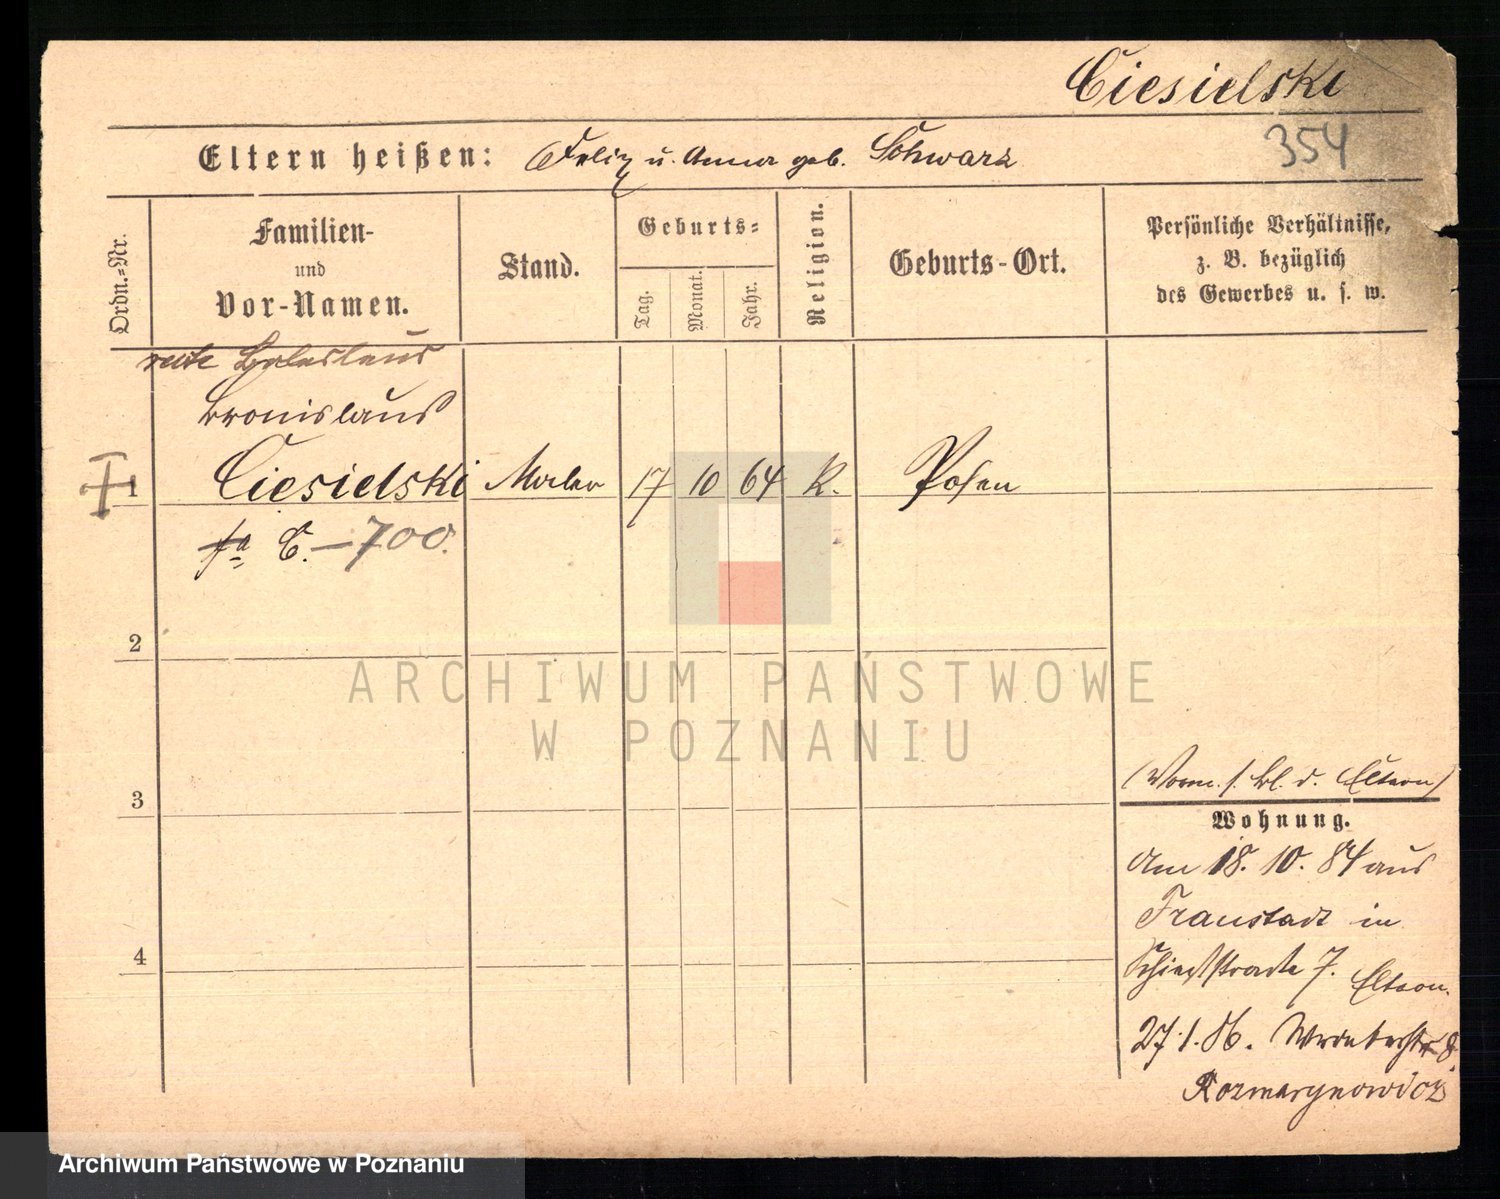 Ciesielski
354
Eltern heißen: Felix u. Anna geb. Schwarz
Ordn.-Nr.
Familien-
und
Vor-Namen.
Stand.
Geburts-
Tag.
Monat.
Jahr.
Religion.
Geburts-Ort.
Persönliche Verhältnisse,
z. B. bezüglich
des Gewerbes u. s. w.
recte Boleslaus
Bronislaus
1 Ciesielski Maler 17 10 64 K. Posen
C. – 700.
2
3
4
(Vorm. s. Bl. d. Eltern)
Wohnung.
Am 18. 10. 84 aus
Fraustadt in
Schießstraße 7. Eltern.
27.1.86. 8
Rozmarynowicz
ARCHIWUM PAŃSTWOWE
W POZNANIU
Archiwum Państwowe w Poznaniu